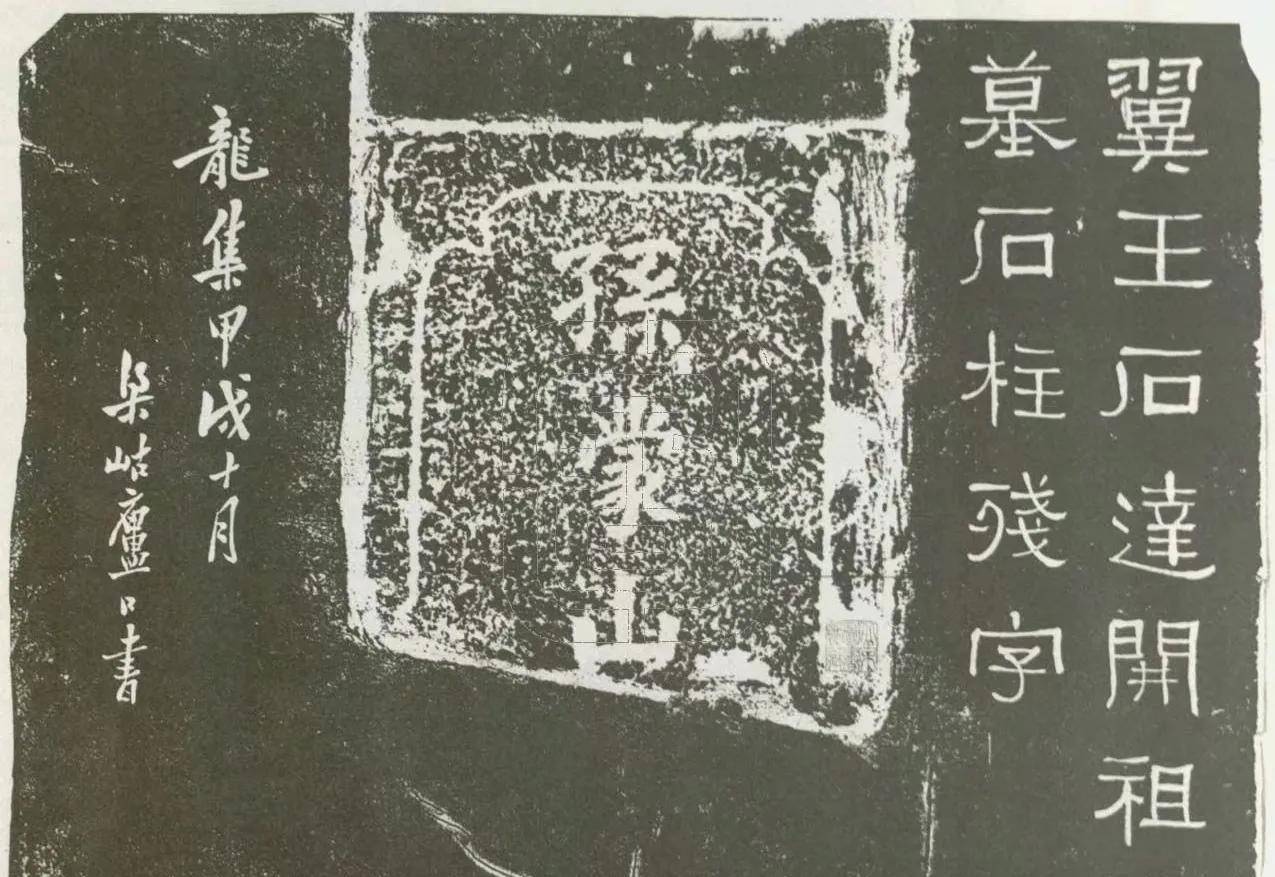 翼王石達開祖
墓石柱殘字
孫掌山
龍集甲戌十月
岵廬書